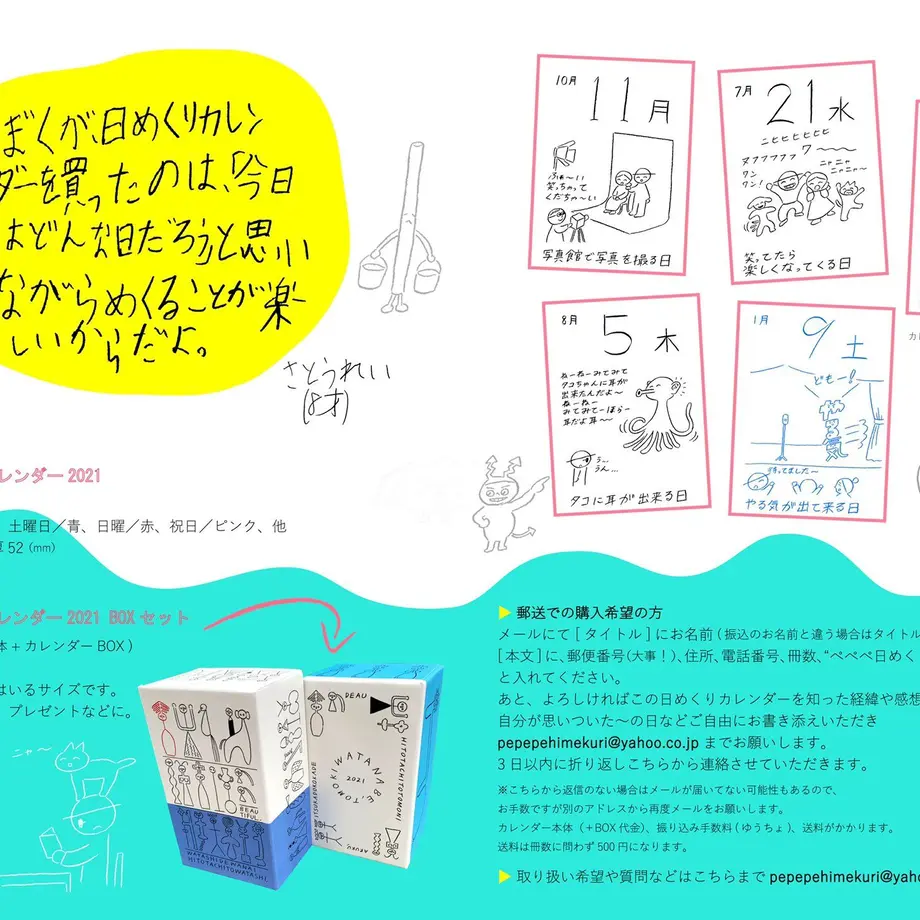 ぼくが、日めくりカレン
ダーを買ったのは、「今日
はどんな日だろう」と思い
ながらめくることが楽
しいからだよ。
さとうれい
(8才)
レンダー 2021
土曜日／青、日曜／赤、祝日／ピンク、他
52 (mm)
レンダー 2021 BOX セット
本 + カレンダー BOX )
はいるサイズです。
プレゼントなどに。
ニャ〜
DEAU
HITOTACHITOTOMONI
WATANABE, TOMOKO
2021
ARUKU,
BEAU
TIFUL...
WATASHIDEWANAI
HITOTACHITOWATASHI
10月
11 月
ふぁ〜い
笑っちゃって
くだちゃ〜い
写真館で写真を撮る日
7月
21 水
ニヒヒヒヒヒヒ
ヌフフフフフ ワ〜〜〜
ワン
ワン!
ニャニャ
ニャニャ〜
笑ってたら
楽しくなってくる日
8月
5 木
ねーねーみてみて
タコちゃんに耳が
出来たんだよ〜
ねーねー
みてみてーほらー
耳だよ耳〜
う...
うん...
タコに耳が出来る日
1月
9 土
どもー!
やる気
待ってました〜
やる気が出て来る日
▶ 郵送での購入希望の方
メールにて [ タイトル ] にお名前 ( 振込のお名前と違う場合はタイトル
[ 本文 ] に、郵便番号(大事！)、住所、電話番号、冊数、“ペペペ日めく
と入れてください。
あと、よろしければこの日めくりカレンダーを知った経緯や感想
自分が思いついた〜の日などご自由にお書き添えいただき
pepepehimekuri@yahoo.co.jp までお願いします。
3 日以内に折り返しこちらから連絡させていただきます。
※こちらから返信のない場合はメールが届いてない可能性もあるので、
お手数ですが別のアドレスから再度メールをお願いします。
カレンダー本体（＋BOX 代金)、振り込み手数料 ( ゆうちょ )、送料がかかります。
送料は冊数に問わず 500 円になります。
▶ 取り扱い希望や質問などはこちらまで pepepehimekuri@yaho